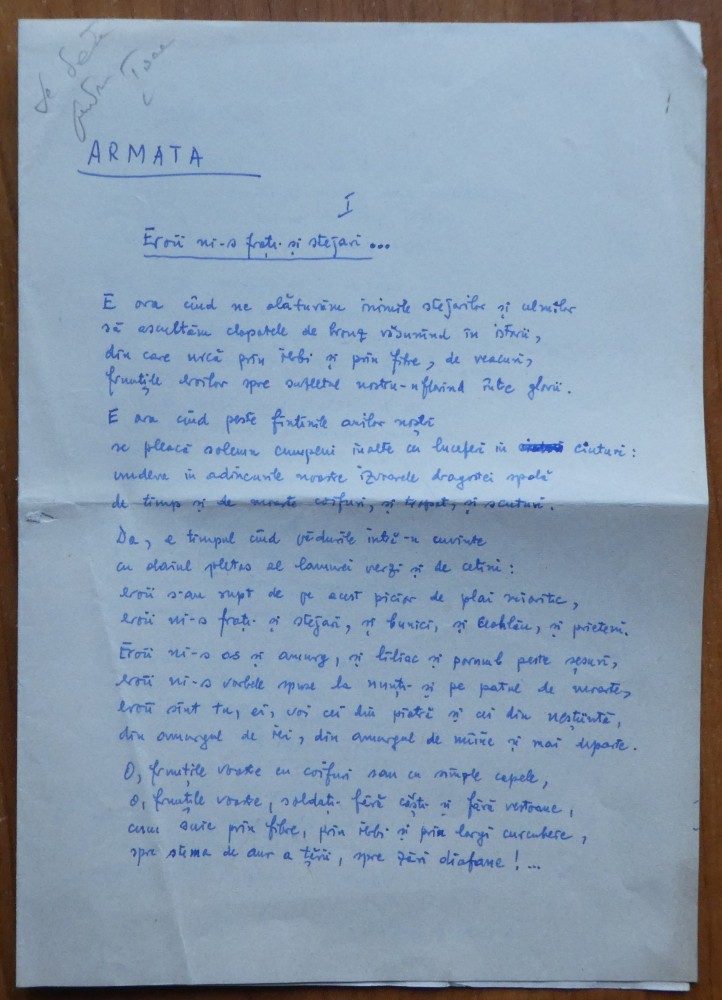 ARMATA
I
Eroii ni-s frați și stejari...
E ora cînd ne alăturăm inimile stejarilor și ulmilor
să ascultăm clopotele de bronz răsunînd în istorii,
din care urcă prin ierbi și prin fibre, de veacuri,
frunțile eroilor spre sufletul nostru-nflorind între glorii.
E ora cînd peste fîntînile anilor noștri
se pleacă solemn cumpeni înalte cu luceferi în ciuturi:
undeva în adîncurile noastre izvoarele dragostei spală
de timp și de moarte coifuri, și trupet, și scuturi.
Da, e timpul cînd vadurile intră-n cuvinte
cu doniul pletos al lamurei verzi și de cetini:
eroii s-au rupt de pe acest picior de plai mioritic,
eroii ni-s frați și stejari, și bunici, și Ceahlău, și prieteni.
Eroii ni-s os și amurg, și liliac și porumb peste șesuri,
eroii ni-s vorbele spuse la nunți și pe patul de moarte,
eroii sînt tu, ei, voi cei din piatră și cei din neștiință,
din amurgul de ieri, din amurgul de mîine și mai departe.
O, frunțile voastre cu coifuri sau cu simple capele,
o, frunțile voastre, soldați fără căști și fără vestoane,
cum suie prin fibre, prin ierbi și prin largi curcubeie,
spre stema de aur a țării, spre zări diafane!...